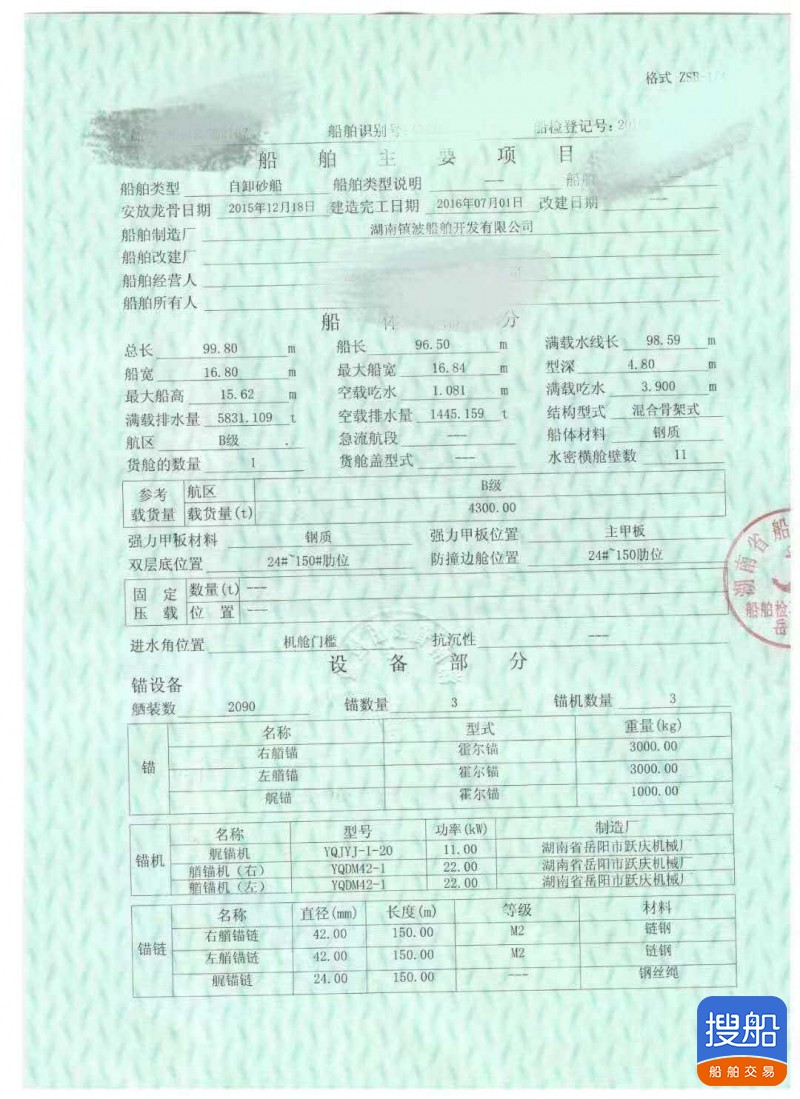 格式 ZSB-1/
船舶识别号: 船检登记号: 201
船舶主要项目
船舶类型 自卸砂船 船舶类型说明 --- 船舶
安放龙骨日期 2015年12月18日 建造完工日期 2016年07月01日 改建日期 ---
船舶制造厂 湖南镇波船舶开发有限公司
船舶改建厂
船舶经营人 司
船舶所有人
船体部分
总长 99.80 m 船长 96.50 m 满载水线长 98.59 m
船宽 16.80 m 最大船宽 16.84 m 型深 4.80 m
最大船高 15.62 m 空载吃水 1.081 m 满载吃水 3.900 m
满载排水量 5831.109 t 空载排水量 1445.159 t 结构型式 混合骨架式
航区 B级 急流航段 --- 船体材料 钢质
货舱的数量 1 货舱盖型式 --- 水密横舱壁数 11
参考载货量 航区 B级
载货量(t) 4300.00
强力甲板材料 钢质 强力甲板位置 主甲板
双层底位置 24#~150#肋位 防撞边舱位置 24#~150肋位
固定压载 数量(t) ---
位置 ---
进水角位置 机舱门槛 抗沉性 ---
设备部分
锚设备
舾装数 2090 锚数量 3 锚机数量 3
锚 名称 型式 重量(kg)
右艏锚 霍尔锚 3000.00
左艏锚 霍尔锚 3000.00
艉锚 霍尔锚 1000.00
锚机 名称 型号 功率(kW) 制造厂
艉锚机 YQJYJ-1-20 11.00 湖南省岳阳市跃庆机械厂
艏锚机(右) YQDM42-1 22.00 湖南省岳阳市跃庆机械厂
艏锚机(左) YQDM42-1 22.00 湖南省岳阳市跃庆机械厂
锚链 名称 直径(mm) 长度(m) 等级 材料
右艏锚链 42.00 150.00 M2 链钢
左艏锚链 42.00 150.00 M2 链钢
艉锚链 24.00 150.00 --- 钢丝绳
湖南省船
船舶检
岳
搜船
船舶交易